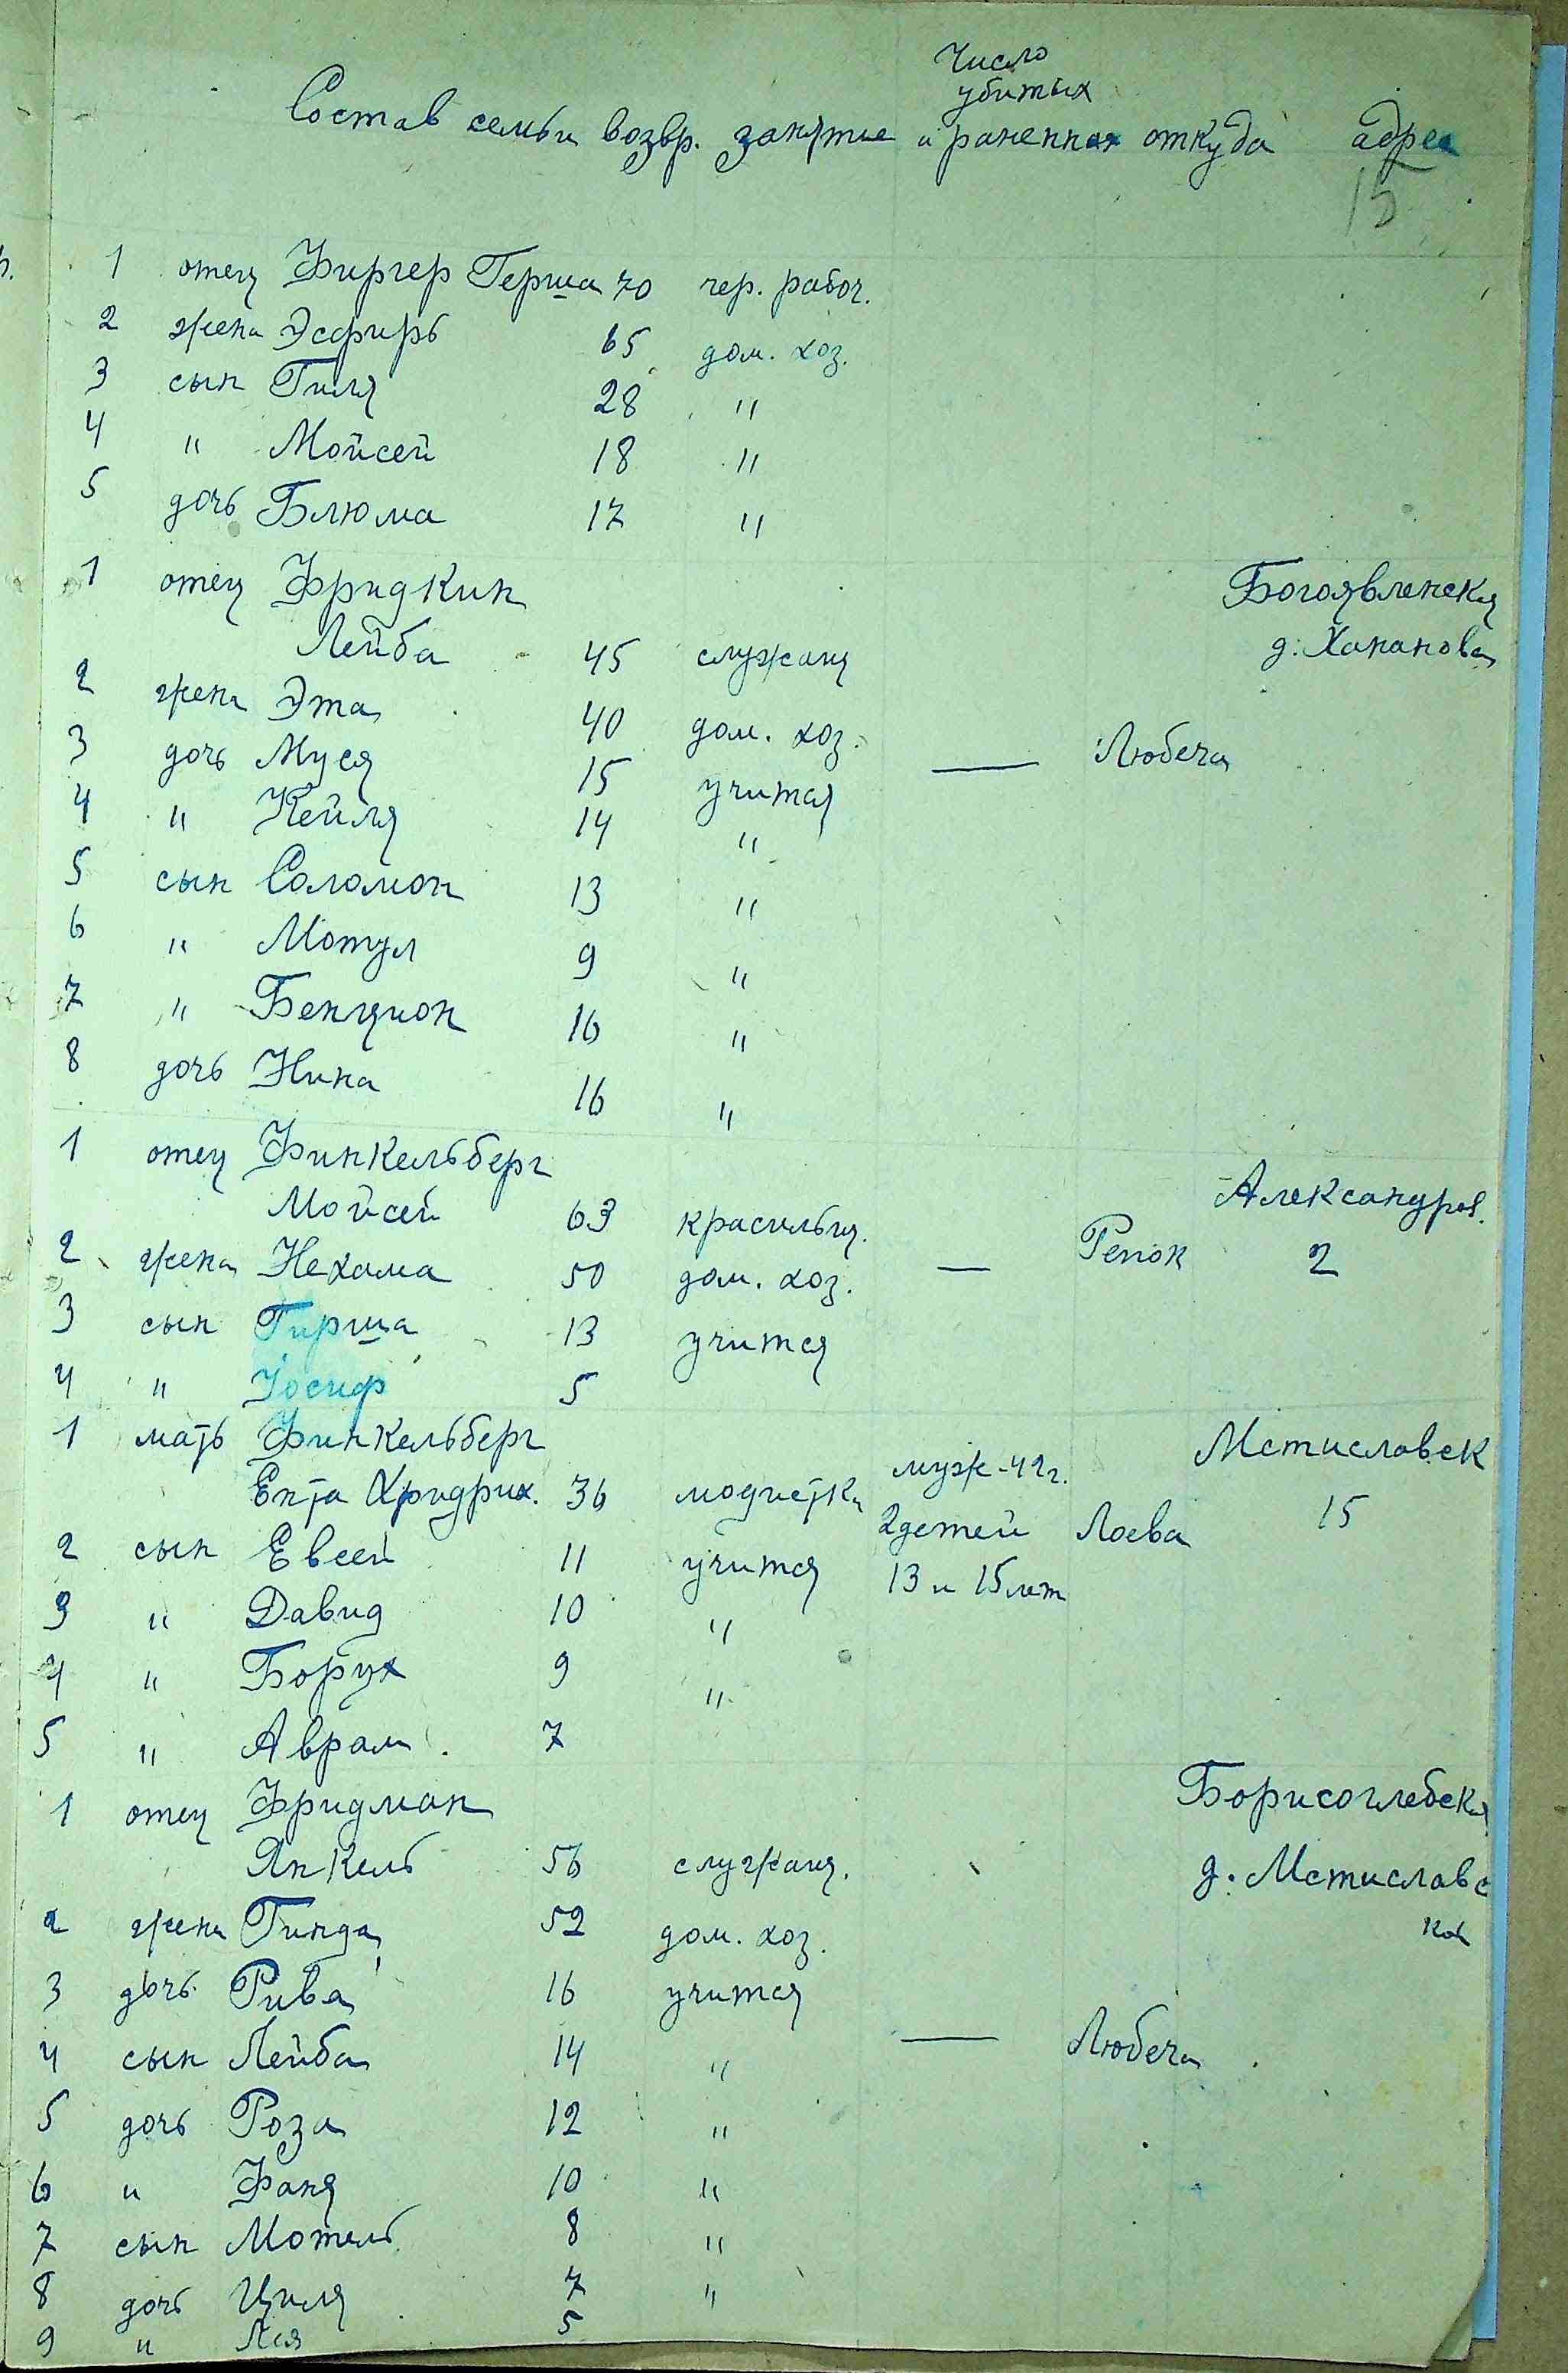 Число
убитых
Состав семьи возвр. занятие и раненных откуда адрес
15
1 отец Фиргер Герша 70 чер. рабоч.
2 жена Эсфирь 65 дом. хоз.
3 сын Гиля 28 "
4 " Мойсей 18 "
5 дочь Блюма 17 "
1 отец Фридкин Богоявленская
Лейба 45 служащ д. Хананова
2 жена Эта 40 дом. хоз.
3 дочь Муся 15 учится — Любеча
4 " Кейля 14 "
5 сын Соломон 13 "
6 " Мотул 9 "
7 " Бенцион 16 "
8 дочь Нина 16 "
1 отец Финкельберг Александров.
Мойсей 63 красильщ.
2 жена Нехама 50 дом. хоз. — Репок 2
3 сын Гирша 13 учится
4 " Иосиф 5
1 мать Финкельберг Мстиславск
Ента Фридрих. 36 модистка муж-42г. 15
2 сын Евсей 11 учится 2 детей Лоева
3 " Давид 10 " 13 и 15 лет
4 " Борух 9 "
5 " Аврам. 7
1 отец Фридман Борисоглебская
Янкель 56 служащ. д. Мстиславс
2 жена Гинда 52 дом. хоз. кой
3 дочь Рива 16 учится
4 сын Лейба 14 " — Любеча
5 дочь Роза 12 "
6 " Фаня 10 "
7 сын Мотель 8 "
8 дочь Циля 7 "
9 " Ася 5